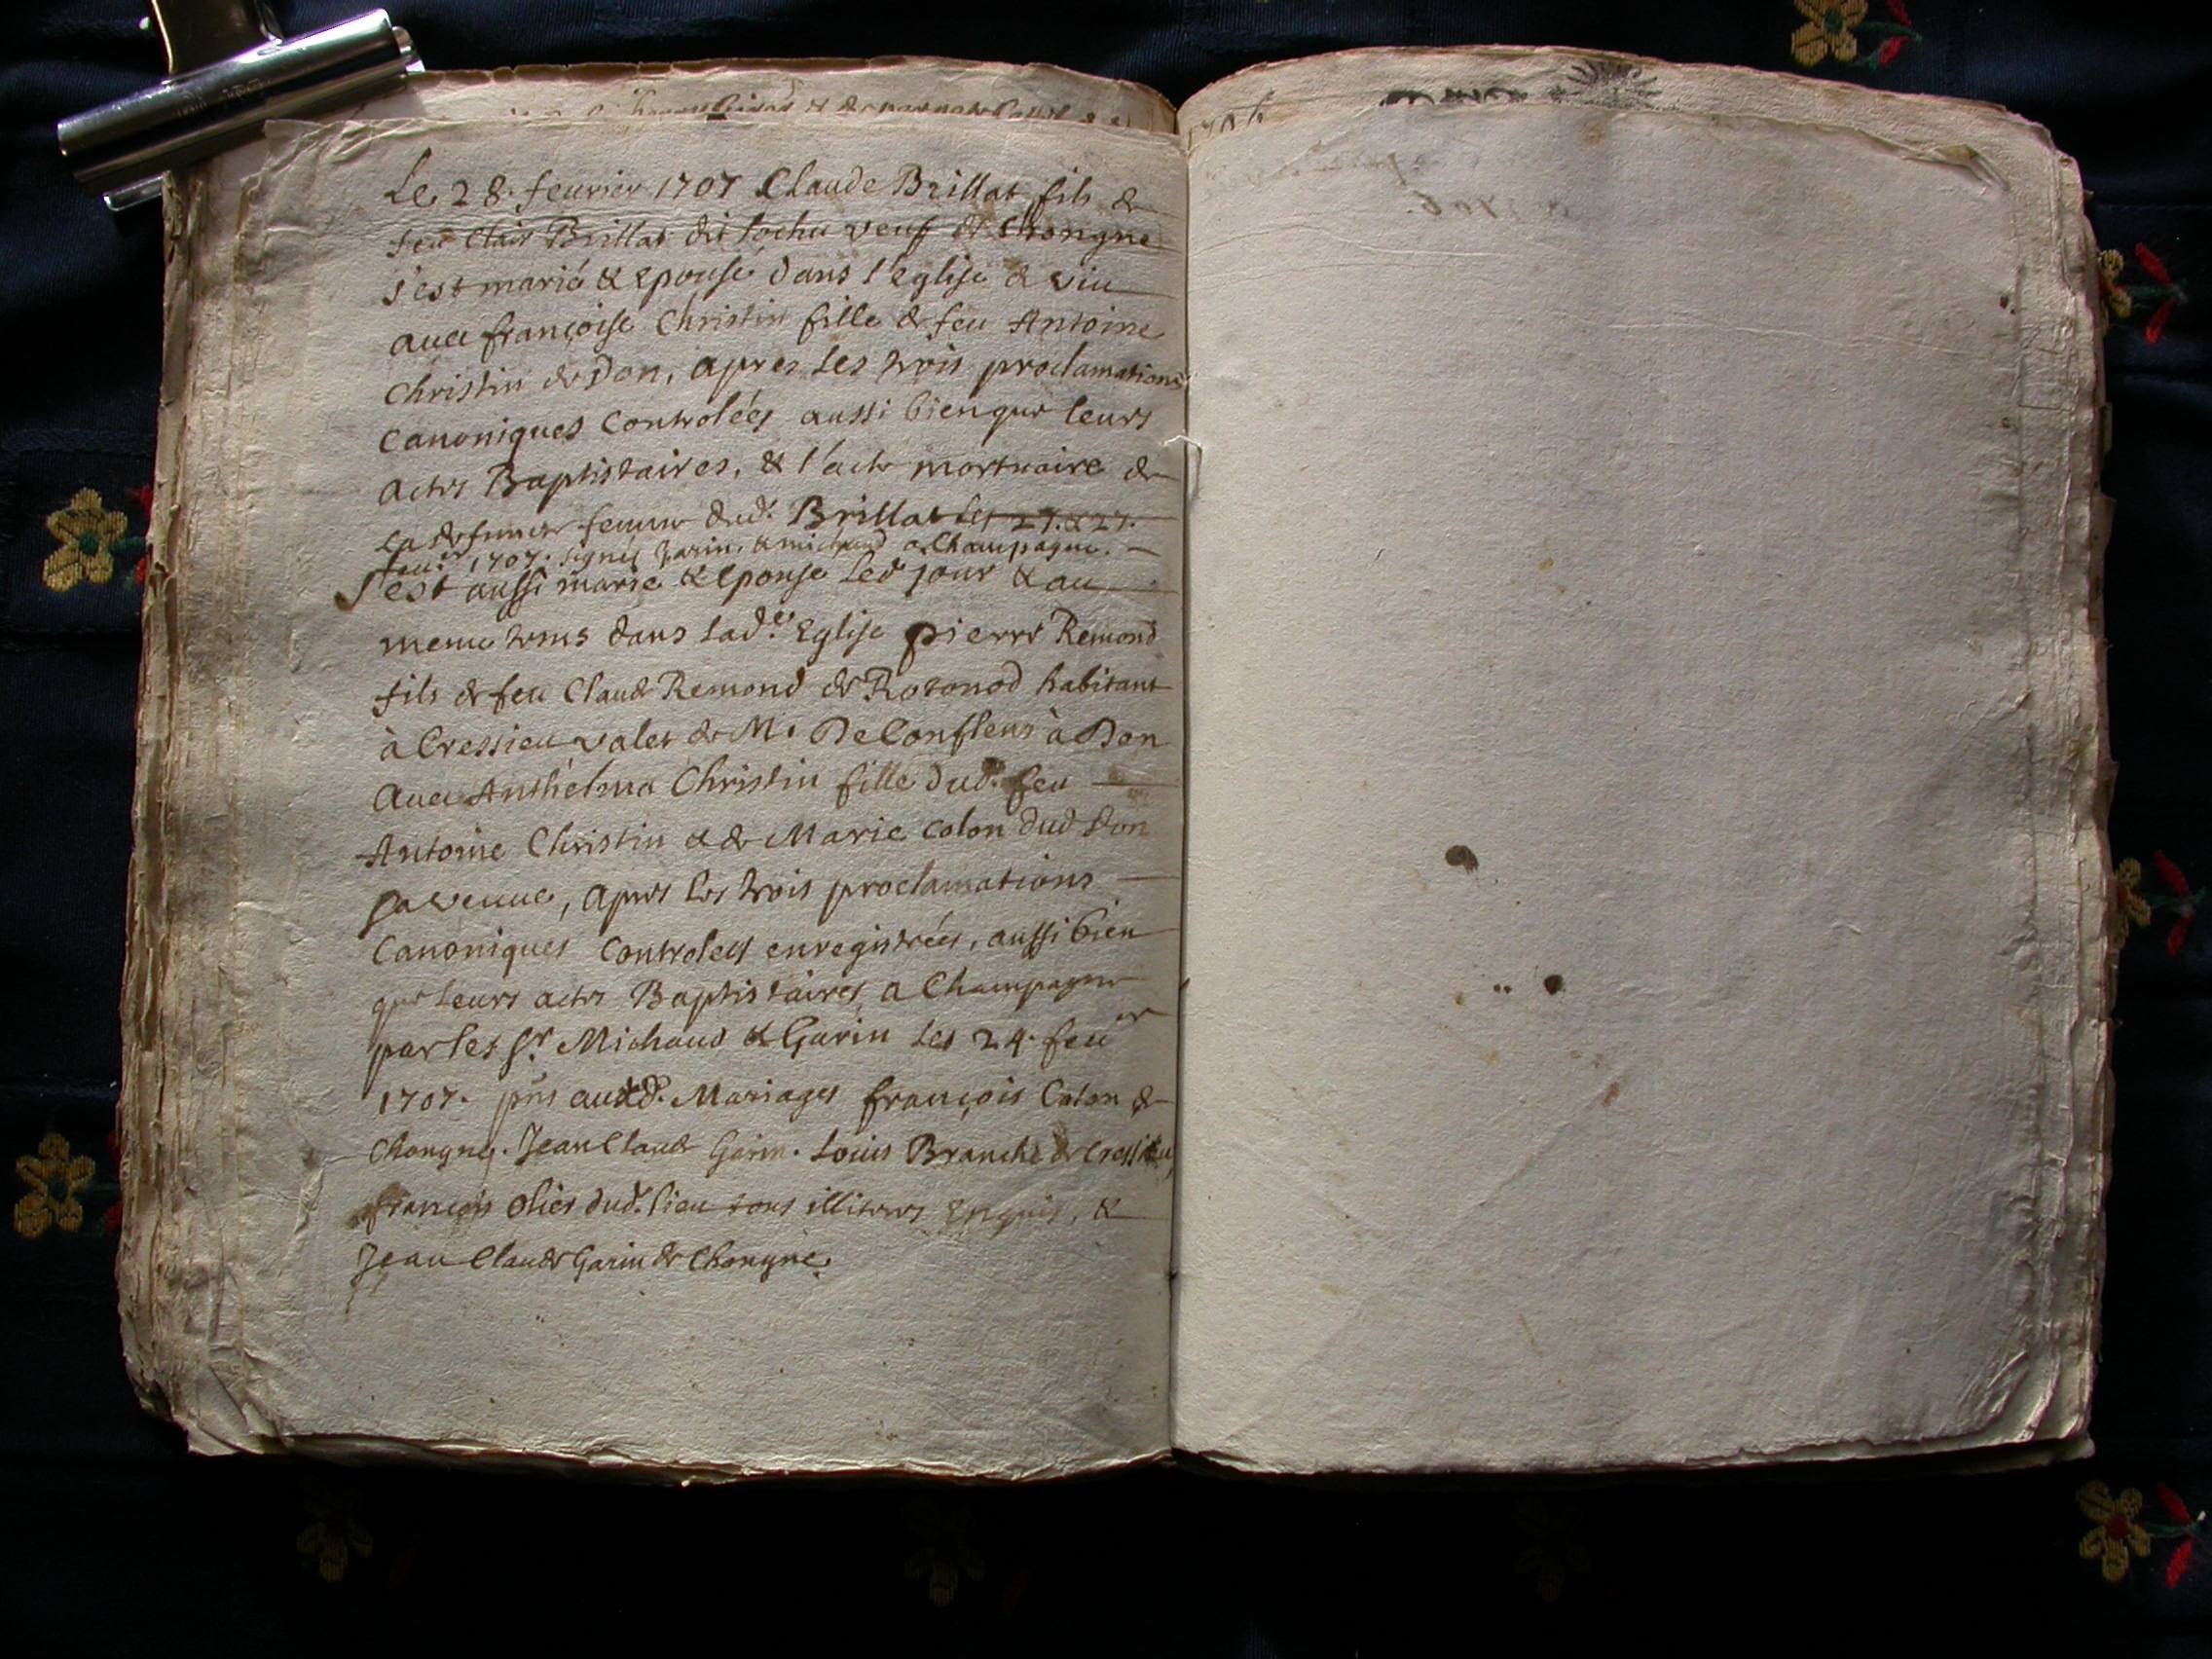 Le 28. feurier 1707 Claude Brillat fils de
feu Clair Brillat dit Sochu veuf de Chongne
s'est marié & epousé dans l'eglise de viu
auec françoise Christin fille de feu Antoine
Christin de Don, apres les trois proclamations
Canoniques Controlées aussi bien que leurs
actes Baptistaires, & l'acte mortuaire de
la defuncte femme dud. Brillat les 27. & 27.
feu.er 1707. signés Garin, & michaud a Champagne.
S'est aussi marié & epousé led jour & au
meme tems dans lad.e Eglise pierre Remond
fils de feu Claude Remond de Rotonod habitant
à Cressieu valet de M. De Conflens à Don
auec Anthelma Christin fille dud. feu
Antoine Christin & de Marie Colon dud Don
sa veuue, apres les trois proclamations
Canoniques Controlees enregistrées, aussi bien
que leurs actes Baptistaires a Champagne
par les Sr. Michaud & Garin Les 24. feu.er
1707. pns auxd. Mariages françois Colon de
Chongne. Jean Claude Garin. Louis Branche de Cressieu,
françois Olier dud. lieu tous illiteres Enquis, &
Jean Claude Garin de Chongne.
1706